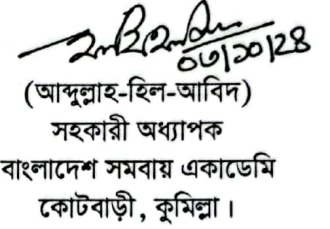 ০৩/১০/২৪
(আব্দুল্লাহ-হিল-আবিদ)
সহকারী অধ্যাপক
বাংলাদেশ সমবায় একাডেমি
কোটবাড়ী, কুমিল্লা।